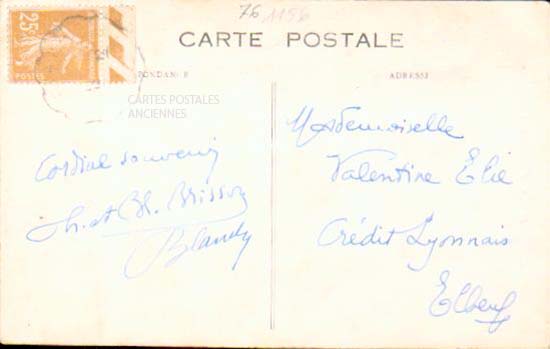 25c
POSTES
76 1156
CARTE POSTALE
ADRESSE
CARTES POSTALES
ANCIENNES
Cordial souvenir
Th. et Bl. Brisson
Blandy
Mademoiselle
Valentine Élie
Crédit Lyonnais
Elbeuf